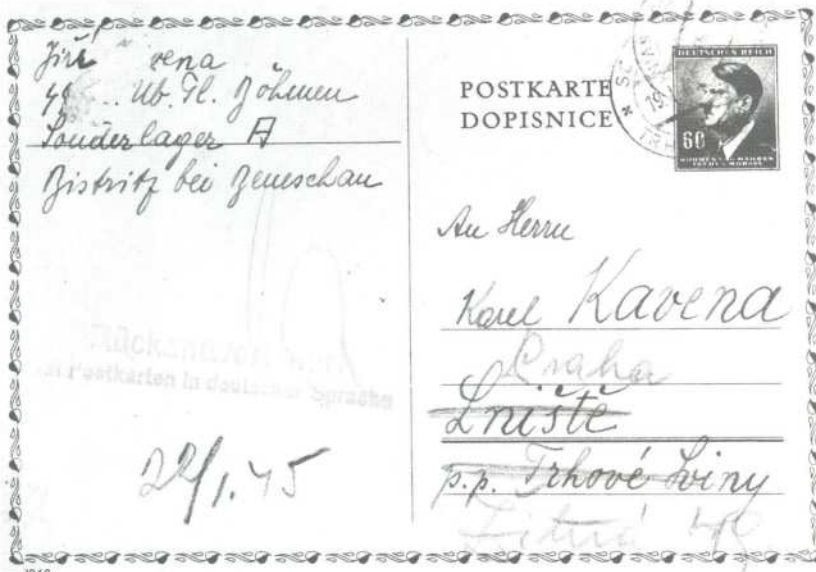 Jiří rena
Üb. Pl. Böhmen
Sonderlager A
Bistritz bei Beneschau
Rückantwort nur
Postkarten in deutscher Sprache
22/1.45
POSTKARTE
DOPISNICE
DEUTSCHES REICH
60
BÖHMEN UND MÄHREN
ČECHY A MORAVA
An Herrn
Karel Kavena
Praha
Lniště
p.p. Trhové Sviny
Žitná